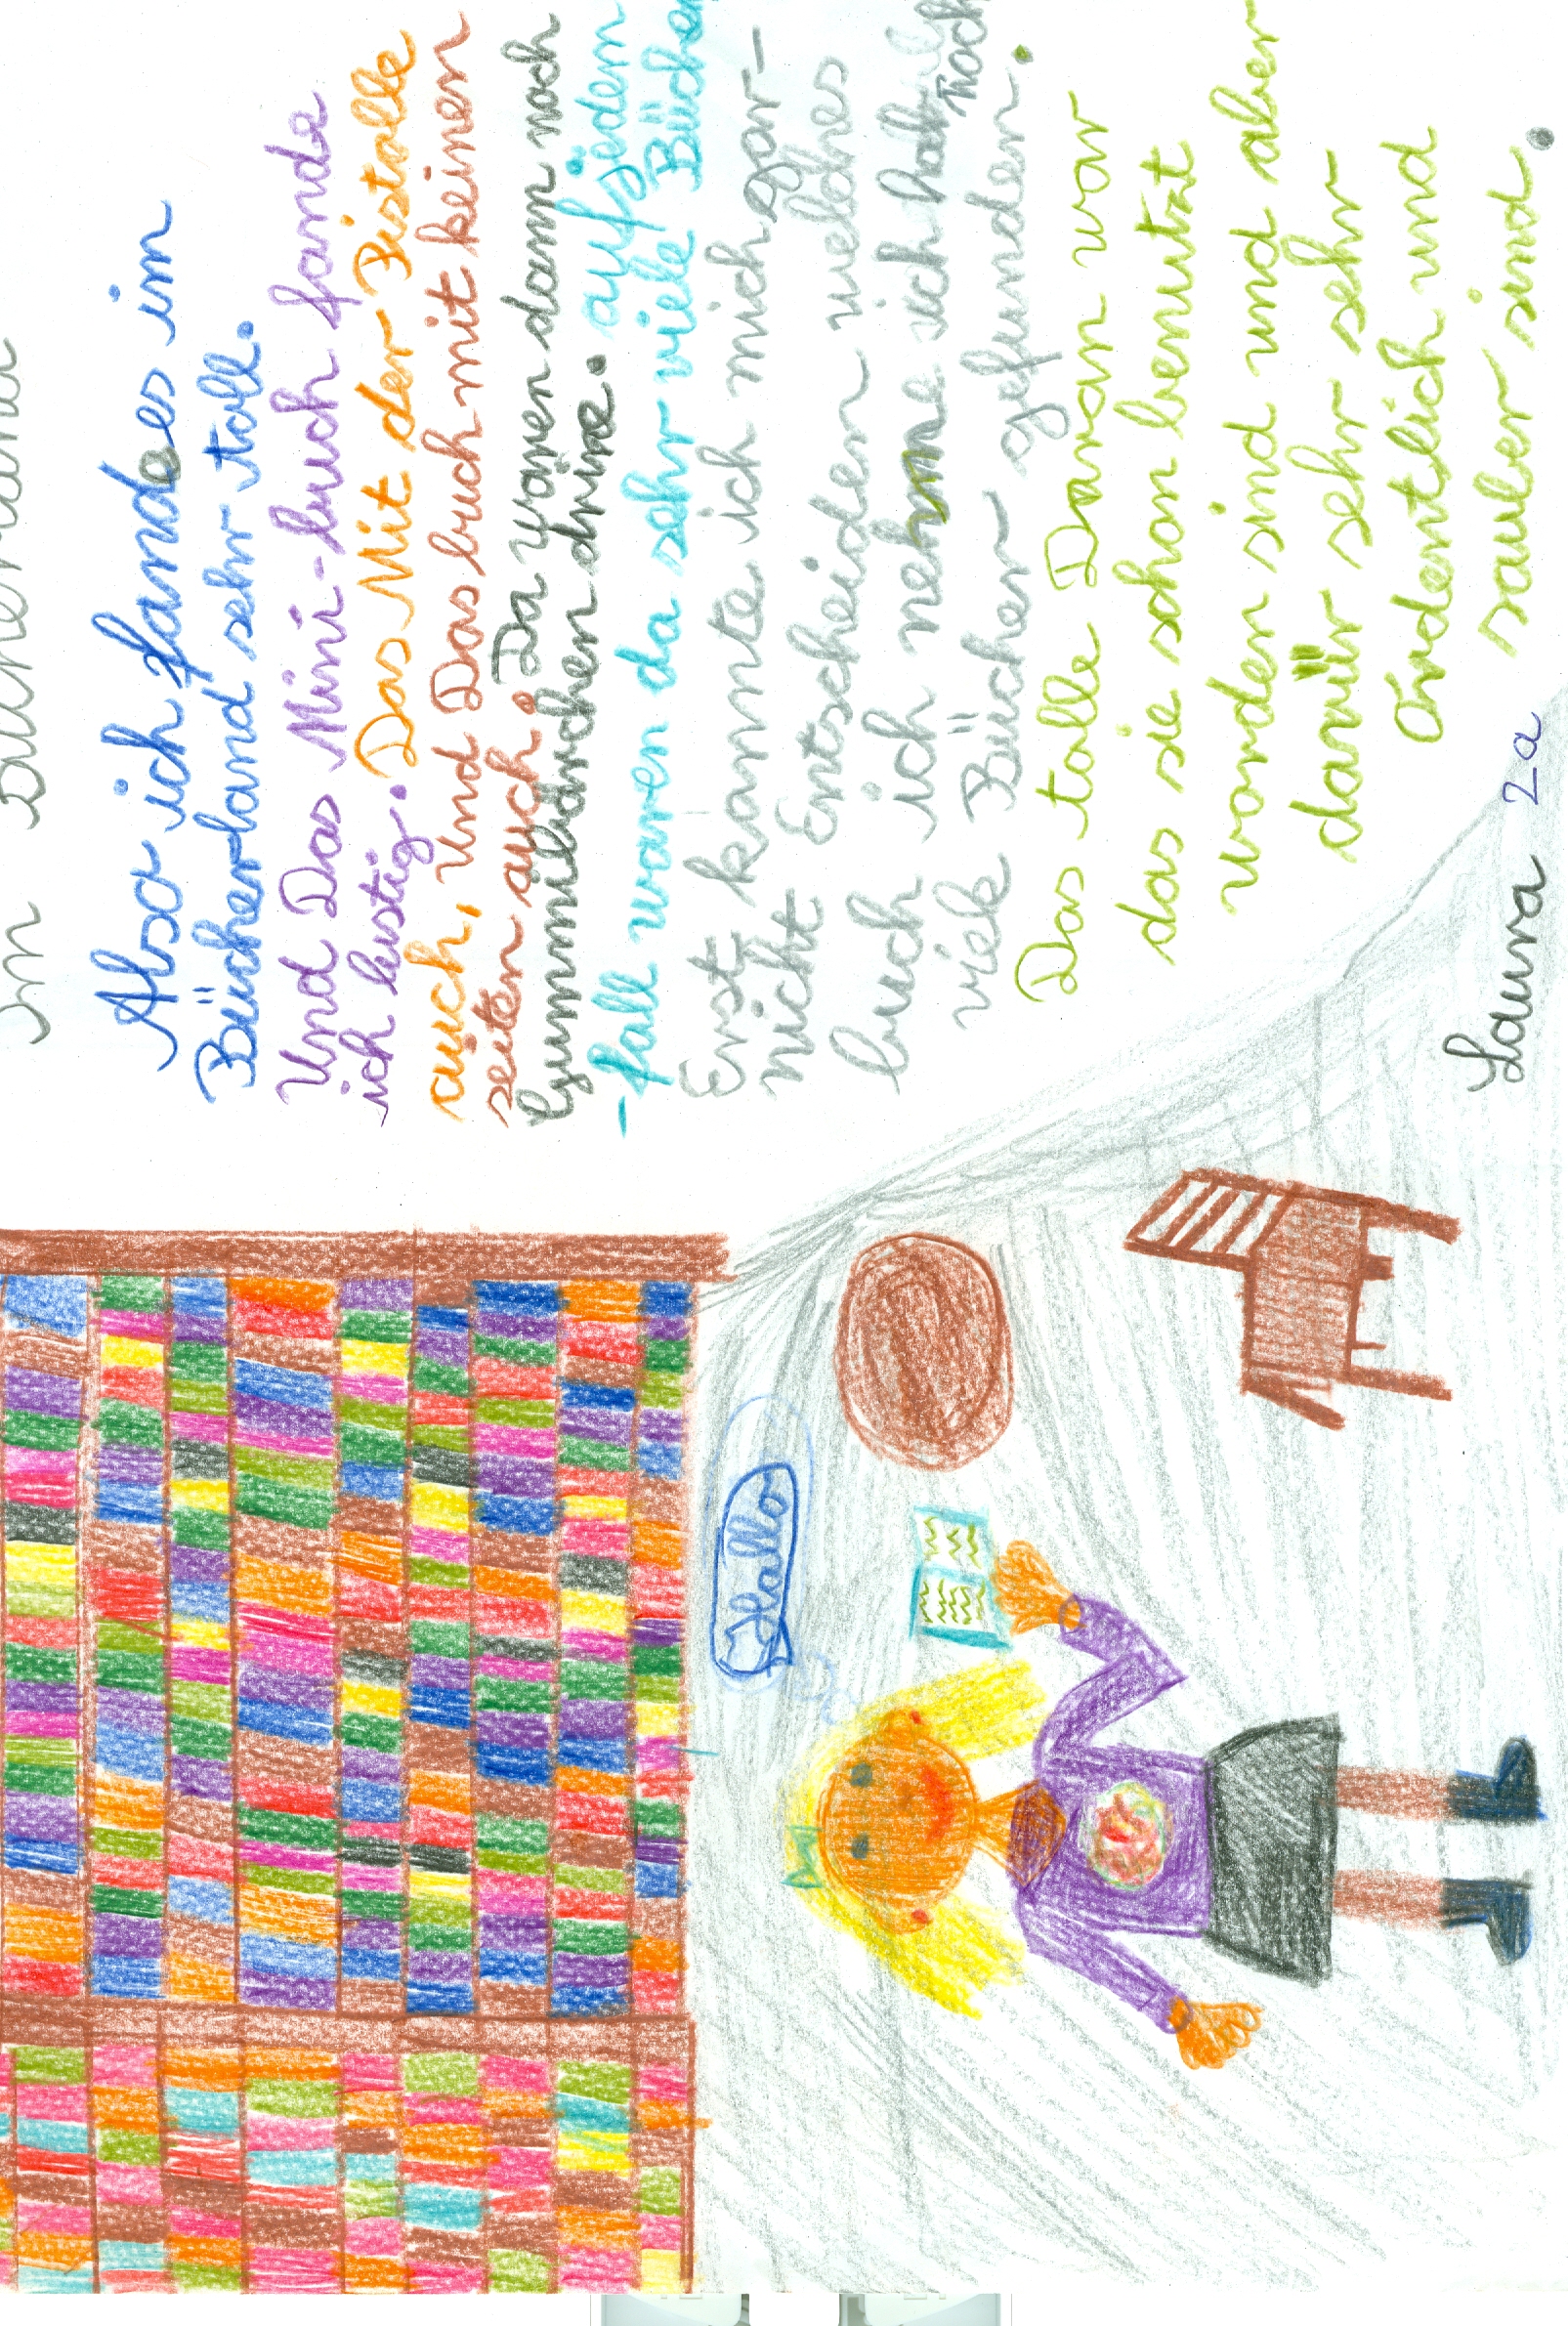 Im Bücherland
Also ich fand es im
Bücherland sehr toll.
Und Das Mini-buch fande
ich lustig. Das Mit der Pistolle
auch, Und Das buch mit keinen
seiten auch. Da waren dann noch
Gummibärchen drine. auf jedem
-fall waren da sehr viele Bücher
Erst kannte ich mich gar-
nicht Entscheiden welches
buch ich nehme ich hab
noch
viele Bücher gefunden.
Das tolle Daran war
das sie schon benutzt
worden sind und aber
dafür sehr sehr
Ordentlich und
sauber sind.
Laura 2a
Hallo